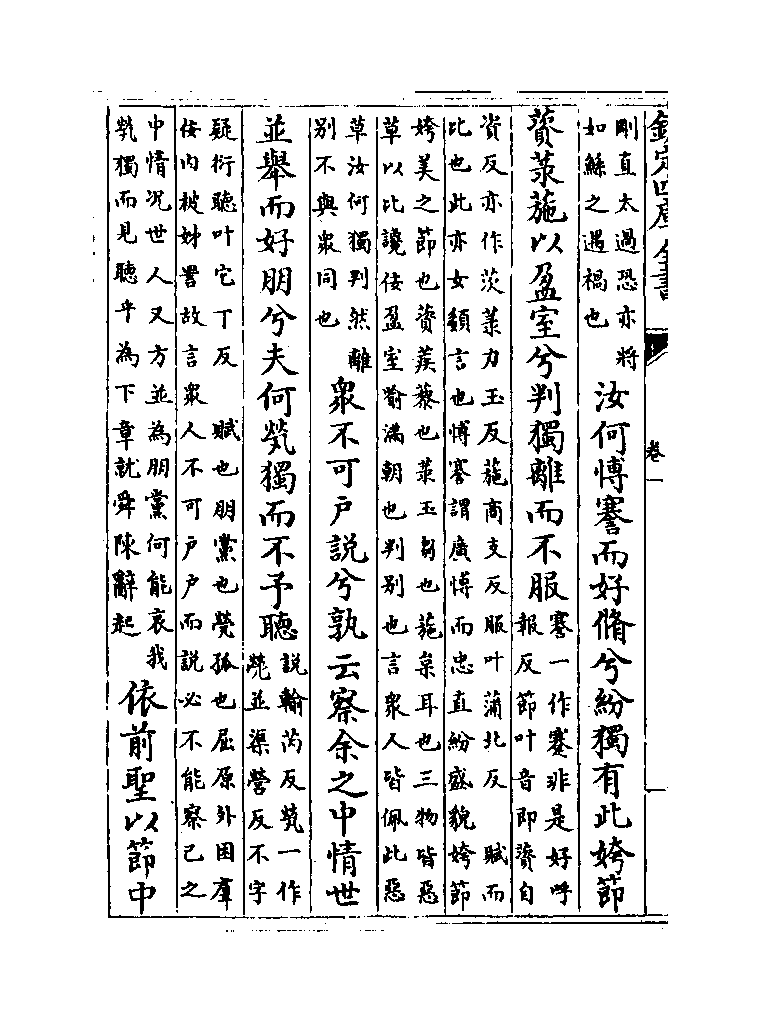 欽定四庫全書 卷一
剛直太過恐亦將
如鯀之遇禍也
汝何愽謇而好脩兮紛獨有此姱節
薋菉葹以盈室兮判獨離而不服
謇一作蹇非是好呼
報反節叶音即薋自
資反亦作茨菉力玉反葹商支反服叶蒲北反 賦而
比也此亦女嬃言也愽謇謂廣愽而忠直紛盛貌姱節
姱美之節也薋蒺藜也菉玉芻也葹枲耳也三物皆惡
草以比讒佞盈室喻滿朝也判别也言衆人皆佩此惡
草汝何獨判然離
别不與衆同也
衆不可户説兮孰云察余之中情世
並舉而好朋兮夫何煢獨而不予聽
説輸芮反煢一作
㷀並渠營反不字
疑衍聽叶它丁反 賦也朋黨也煢孤也屈原外困羣
佞内被姊詈故言衆人不可户户而説必不能察己之
中情况世人又方並為朋黨何能哀我
煢獨而見聽乎為下章就舜陳辭起
依前聖以節中